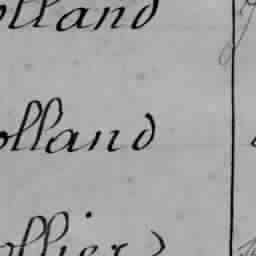 olland
olland
ollier